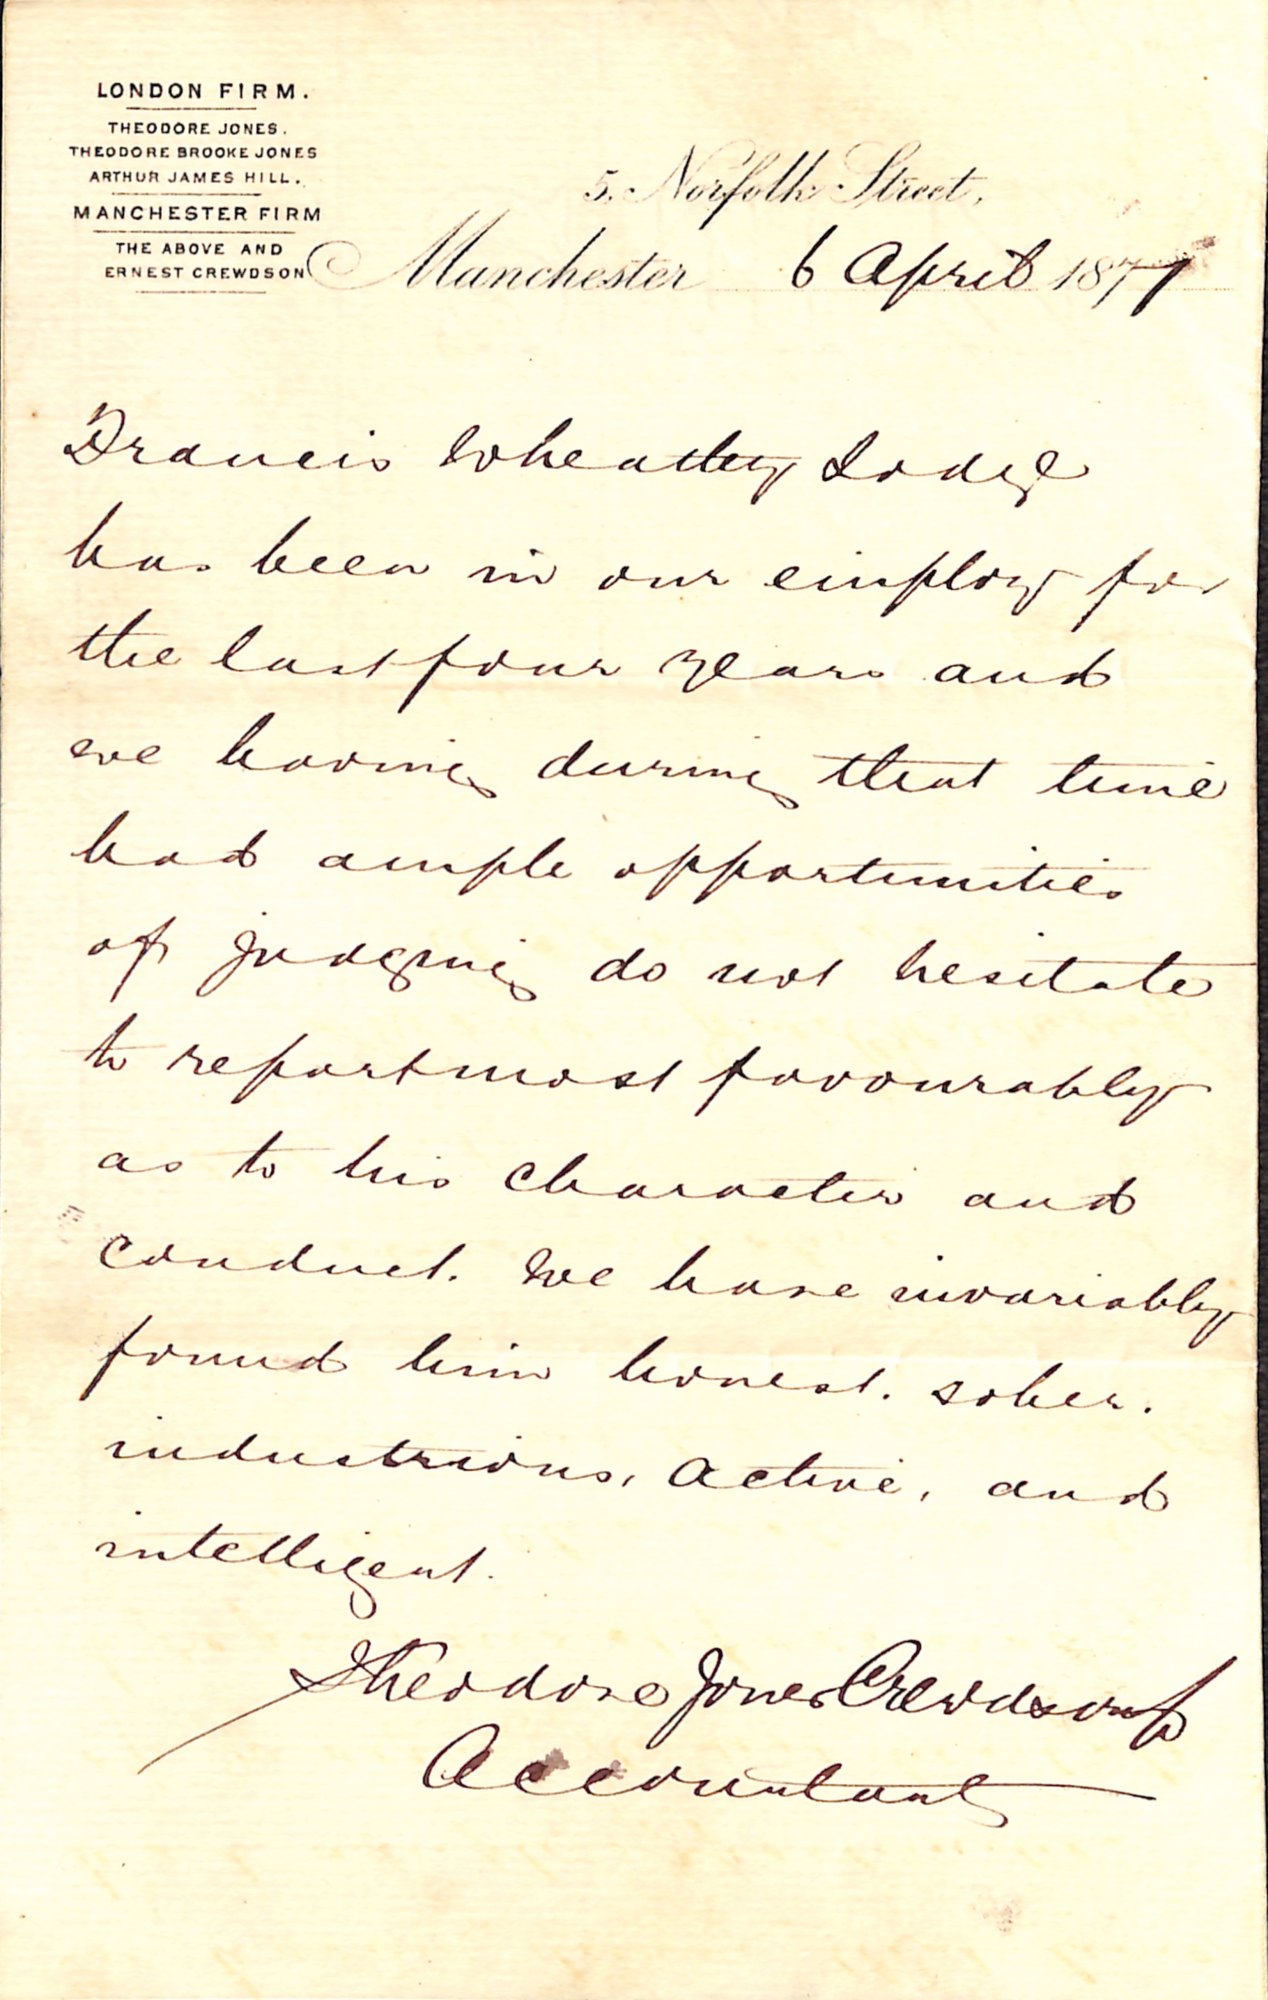 LONDON FIRM.
THEODORE JONES.
THEODORE BROOKE JONES
ARTHUR JAMES HILL.
MANCHESTER FIRM
THE ABOVE AND
ERNEST CREWDSON
5, Norfolk Street,
Manchester 6 April 1877
Francis Wheatley Lodge
has been in our employ for
the last four years and
we having during that time
had ample opportunities
of judging do not hesitate
to report most favourably
as to his character and
conduct. We have invariably
found him honest. sober.
industrious, active, and
intelligent.
Theodore Jones Crewdson
Accountants